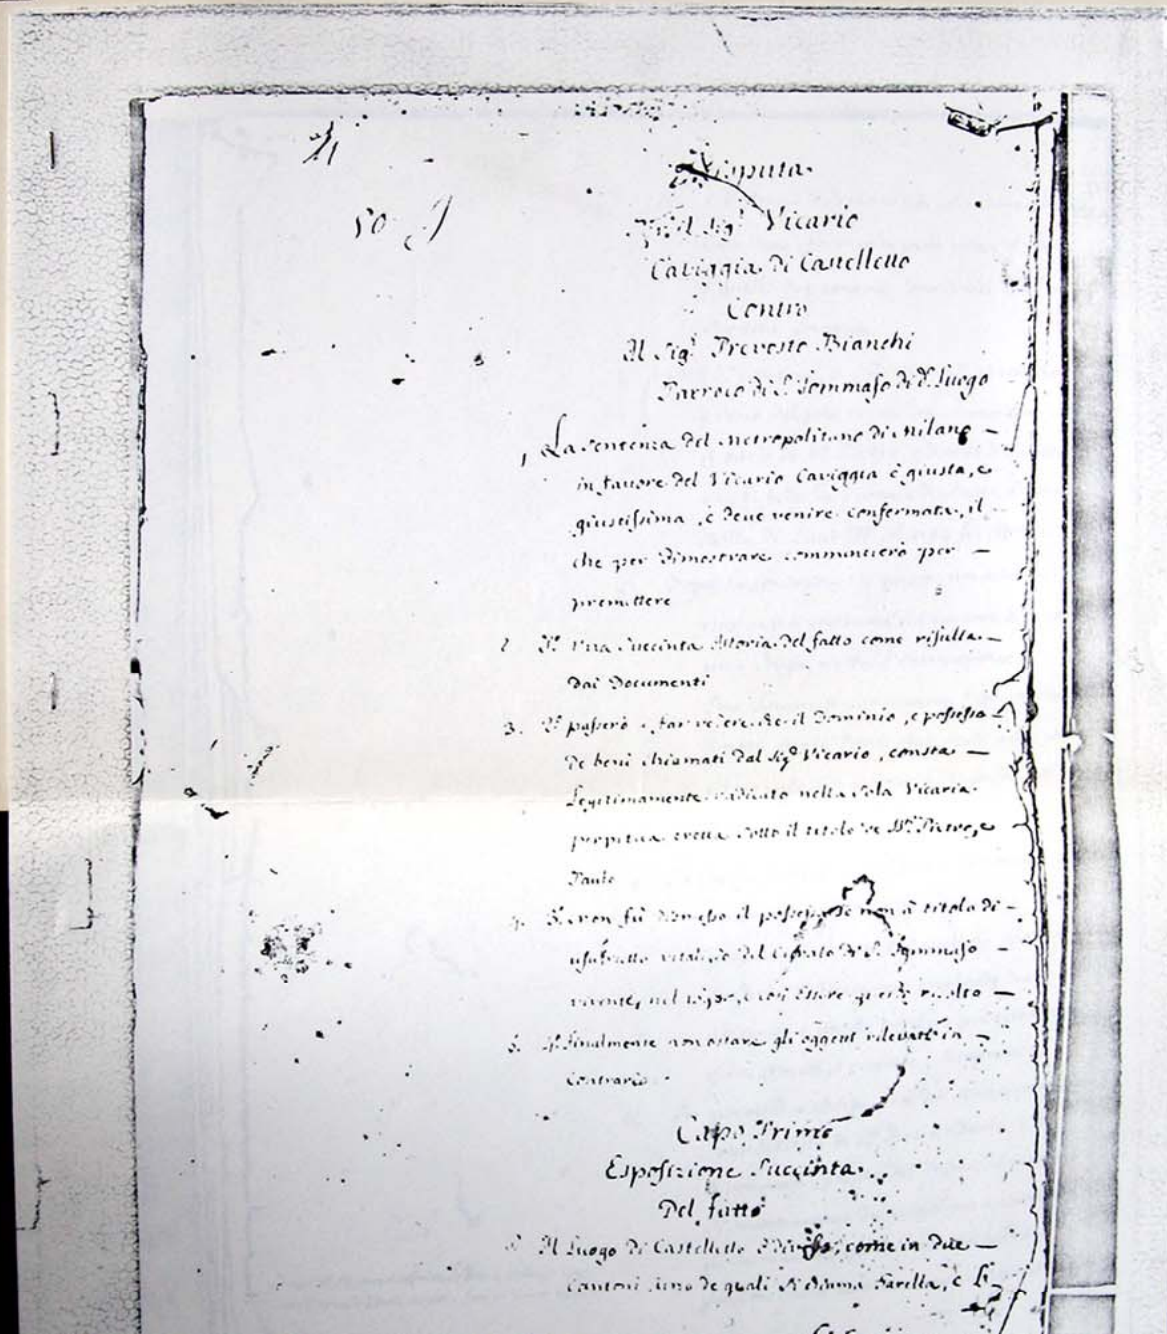 50
Disputa
Del Sig.r Vicario
Caviggia di Castelletto
Contro
Il Sig.r Prevosto Bianchi
Parroco di S. Tommaso di d.o Luogo
1 La sentenza del Metropolitano di Milano
in favore del Vicario Caviggia è giusta, e
giustissima, e deve venire confermata, il
che per dimostrare comminciero per
premettere
2. Una succinta Istoria del fatto come risulta
dai Documenti
3. passerò a far vedere che il Dominio, e possesso
de beni chiamati dal Sig.r Vicario, consta
legitimamente radicato nella sola Vicaria
perpetua eretta sotto il titolo de SS.ti Pietro, e
Paulo
4. non fù dimesso il possesso se non à titolo di
usufrutto vitalizio del Curato di S. Tommaso
vivente, nel
5. finalmente non ostare gli oggetti rilevati in
contrario
Capo Primo
Esposizione Succinta
Del fatto
Il Luogo di Castelletto è diviso, come in due
Cantoni uno de quali si chiama Farella, e